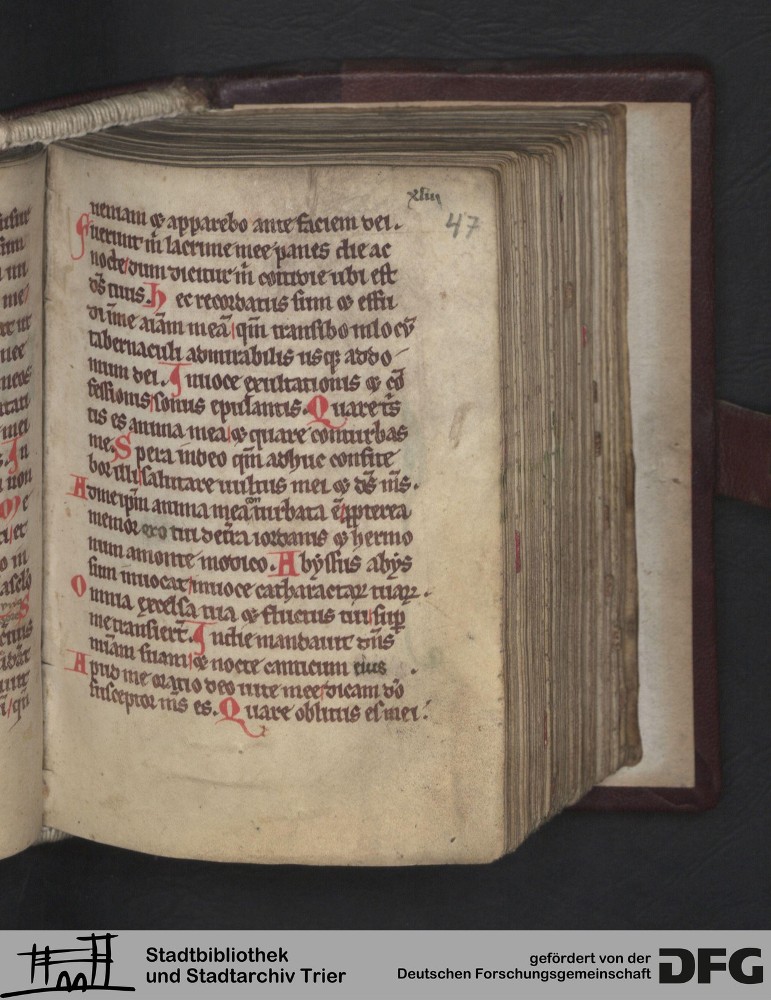 xliii
47
ueniam ⁊ apparebo ante faciem dei.
Fuerunt m̄ lacrime mee panes die ac
nocte/dum dicitur m̄ cottidie ubi est
ds̄ tuus. Hec recordatus sum ⁊ effu
di ī me aīam meā/qm̄ transibo in locū
tabernaculi admirabilis usq; ad do
mum dei. In uoce exultationis ⁊ cō
fessionis/sonus epulantis. Quare ts̄
tis es anima mea/⁊ quare conturbas
me. Spera in deo qm̄ adhuc confite
bor illi/salutare uultus mei ⁊ ds̄ ms̄.
Ad me ipm̄ anima mea turbata ē/ppterea
memor ero tui de tr̄a iordanis ⁊ hermo
nuum a monte modico. Abyssus abys
sum inuocat/in uoce catharactaꝝ tuaꝝ.
Omnia excelsa tua ⁊ fluctus tui/sup
me transierꝯt. In die mandauit dn̄s
mīam suam/⁊ nocte canticum eius .
Apud me oratio deo uite mee/dicam dō
susceptor ms̄ es. Quare oblitus es mei.
Stadtbibliothek
und Stadtarchiv Trier
gefördert von der
Deutschen Forschungsgemeinschaft
DFG